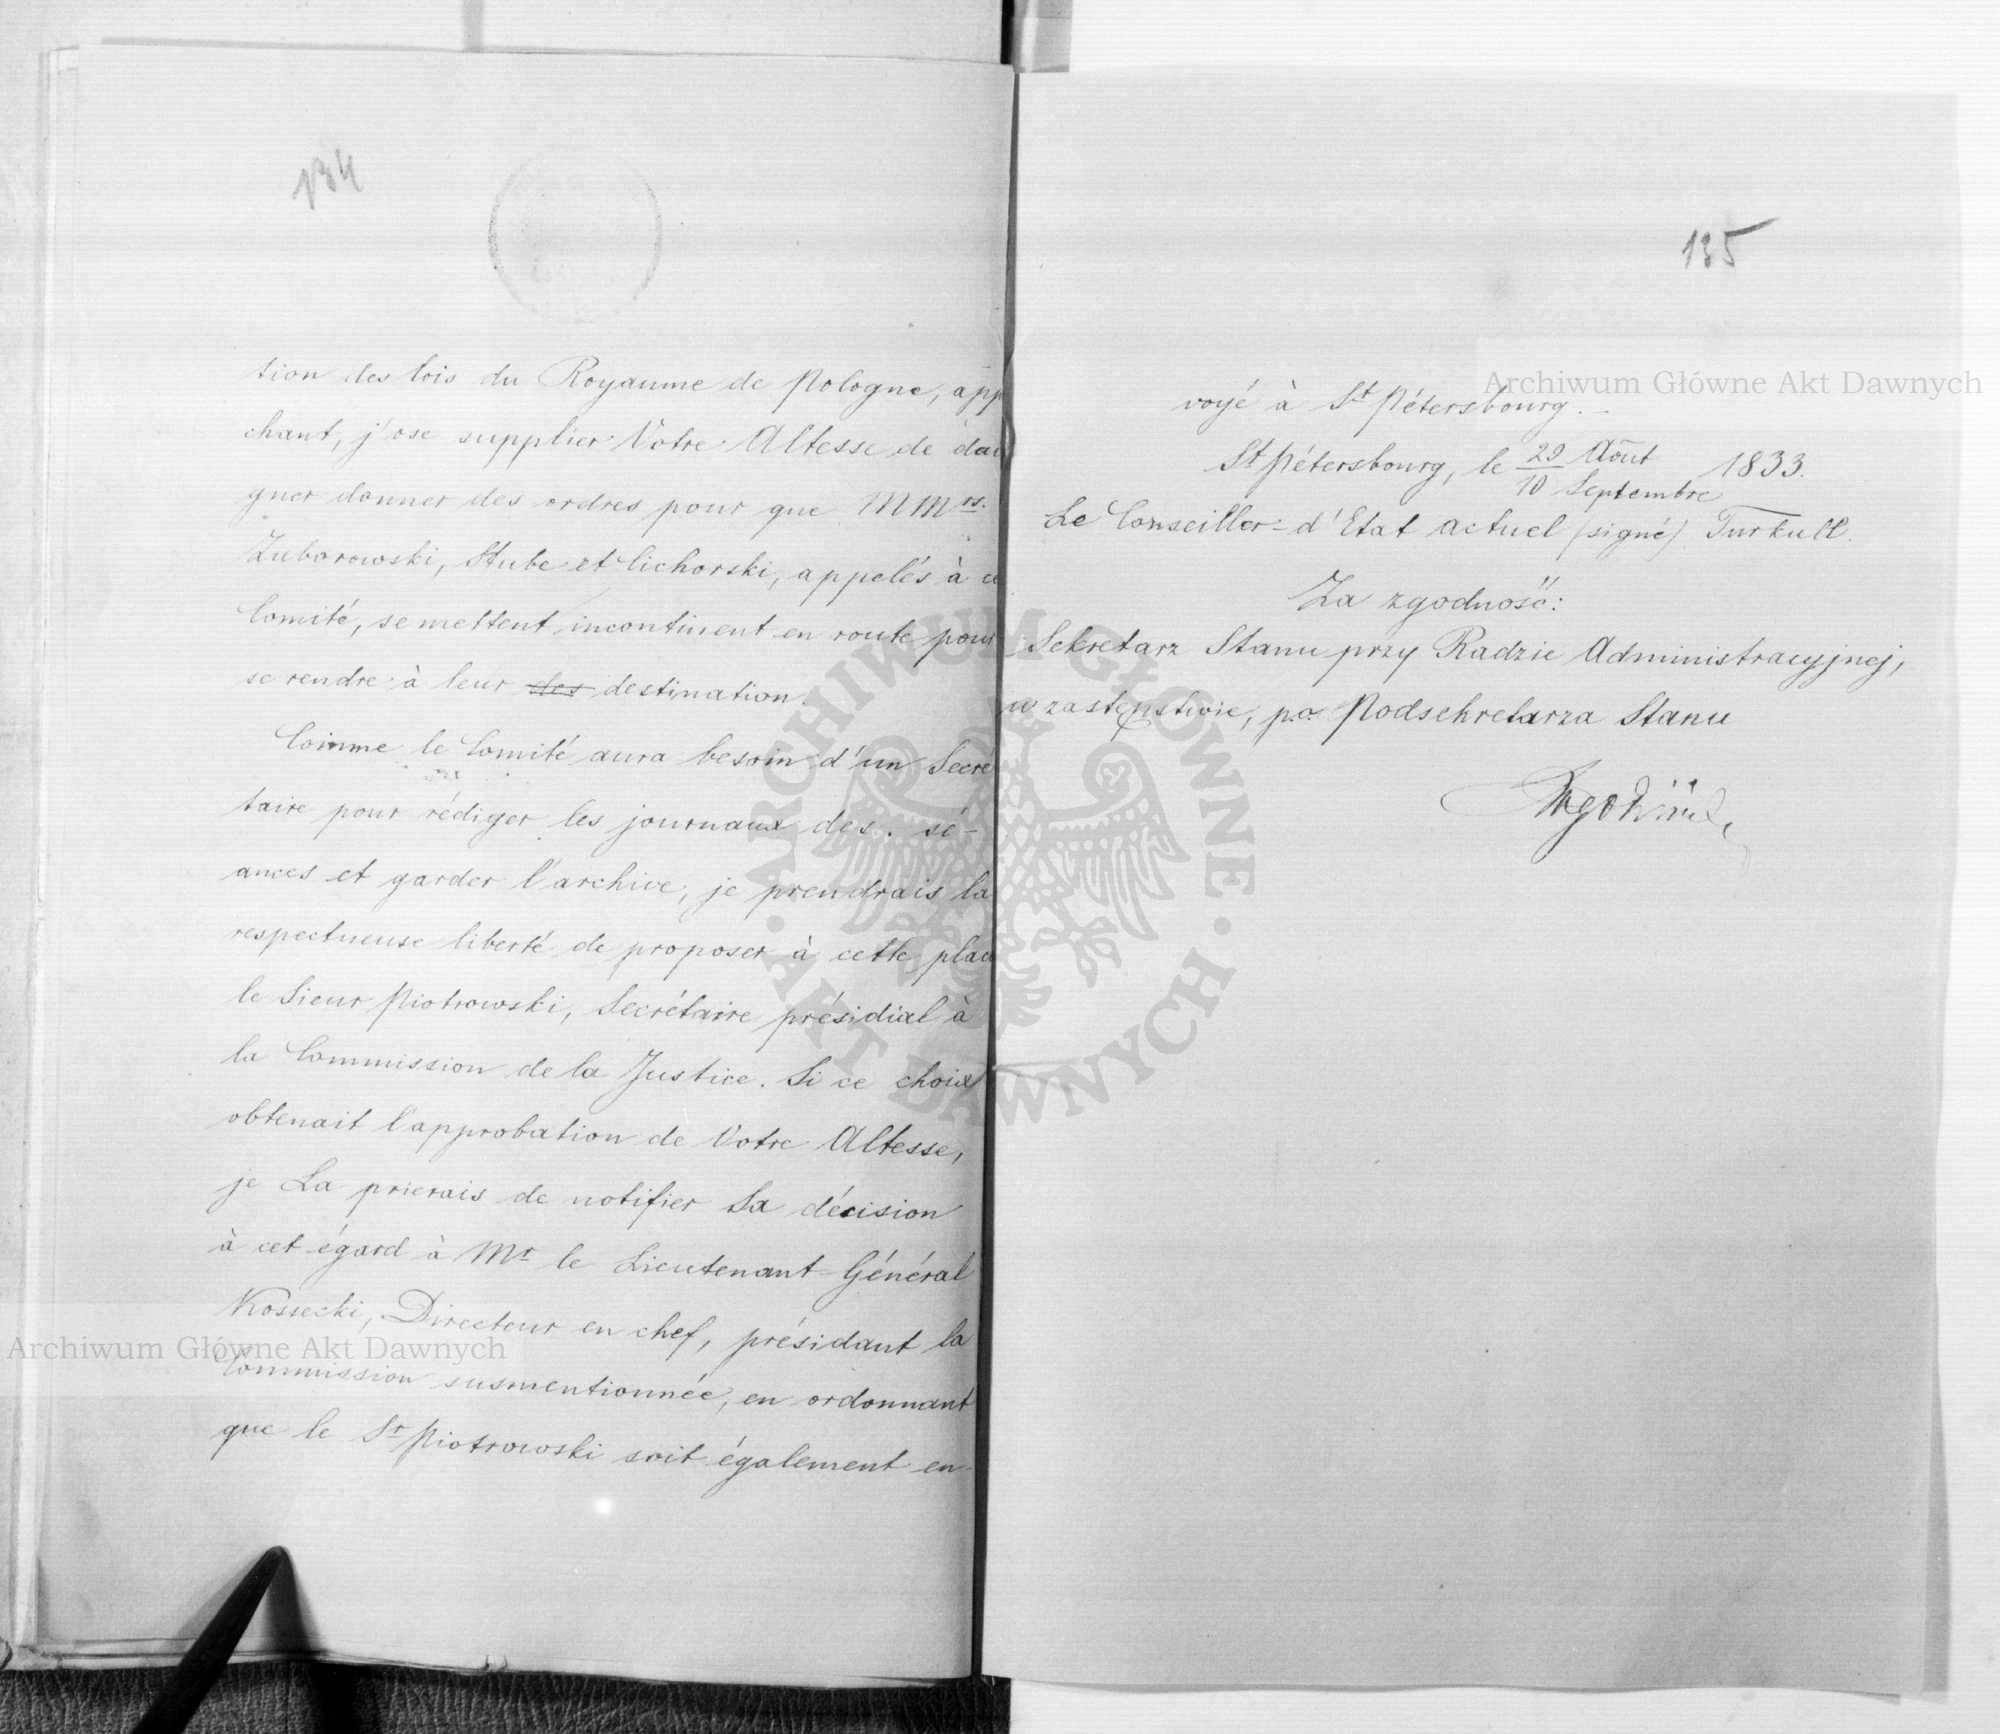 134
tion des lois du Royaume de Pologne, app
chant, j'ose supplier Votre Altesse de dai
gner donner des ordres pour que MMrs.
Zuborowski, Stube et Cichorski, appelés à ce
Comité, se mettent incontinent en route pour
se rendre à leur des destination.
Comme le Comité aura besoin d'un Secré
taire pour rédiger les journaux des sé-
ances et garder l'archive, je prendrais la
respectueuse liberté de proposer à cette place
le Sieur Piotrowski, Secrétaire présidial à
la Commission de la Justice. Si ce choix
obtenait l'approbation de Votre Altesse,
je La prierais de notifier Sa décision
à cet égard à Mr le Lieutenant-Général
Kossecki, Directeur en chef, présidant la
Commission susmentionnée, en ordonnant
que le Sr Piotrowski soit également en-
135
voyé à St Pétersbourg.
St Pétersbourg, le 29 Août / 10 Septembre 1833.
Le Conseiller-d'Etat actuel (signé) Turkull.
Za zgodność:
Sekretarz Stanu przy Radzie Administracyjnej,
w zastępstwie, p.o. Podsekretarza Stanu
Archiwum Główne Akt Dawnych
Archiwum Główne Akt Dawnych
ARCHIWUM GŁÓWNE · AKT DAWNYCH ·